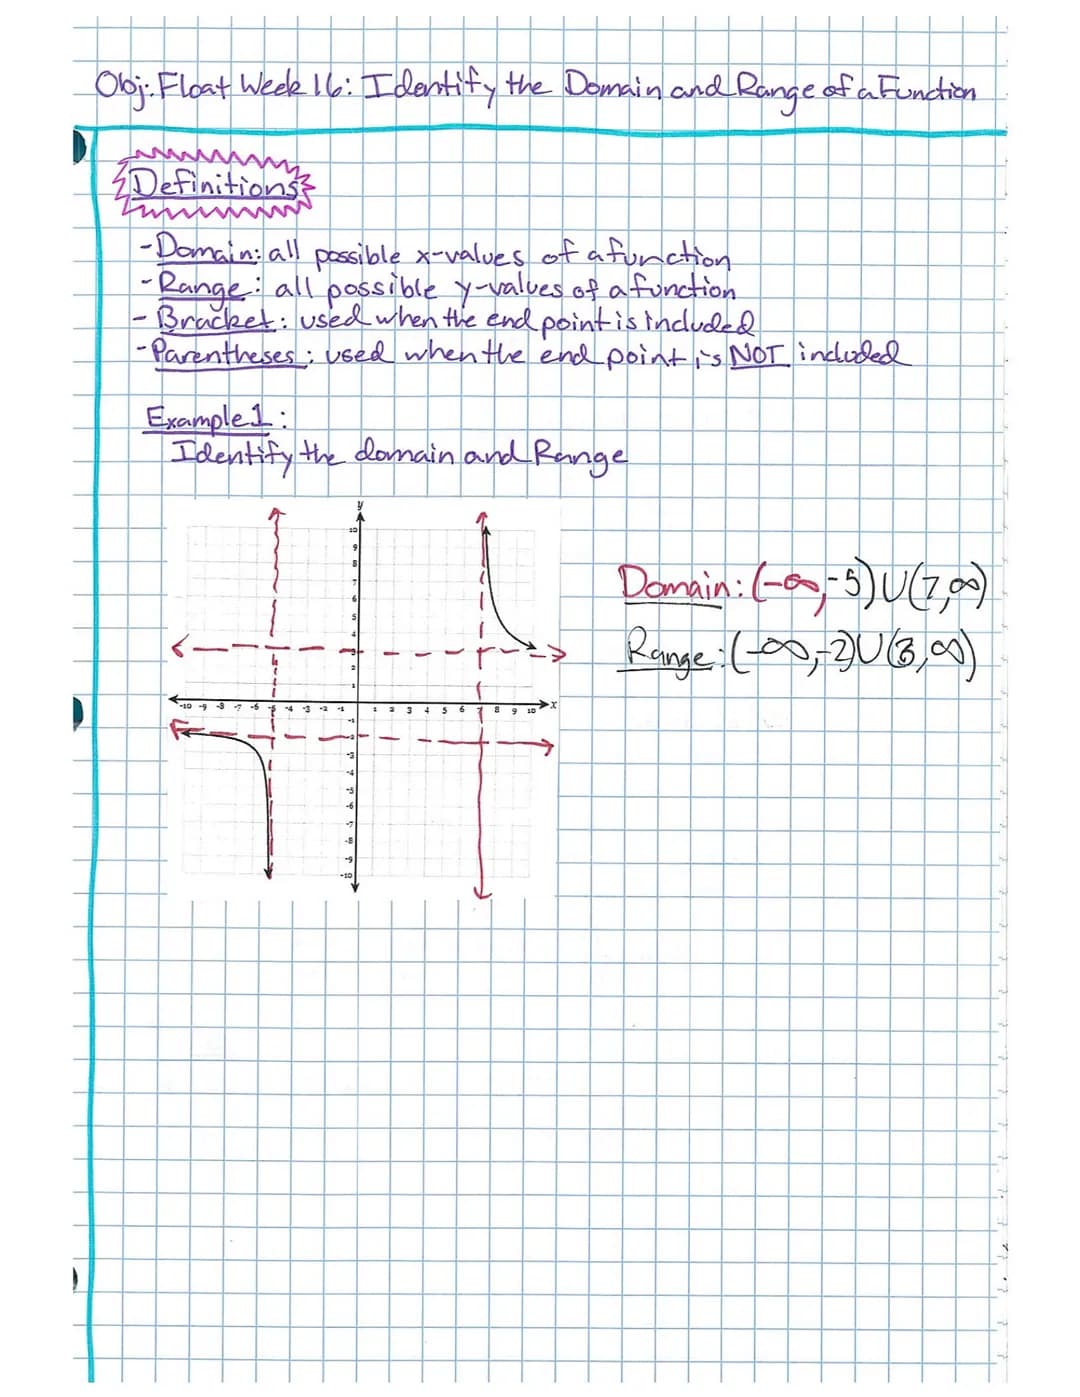 Obj: Float Week 16: Identify the Domain and Range of a Function
Definitions
-Domain: all possible x-values of a function
-Range: all possible y-values of a function
-Bracket: used when the end point is included
-Parentheses: used when the end point is NOT included
Example 1:
Identify the domain and Range
y
10
9
8
7
6
5
4
3
2
1
-10 -9 -8 -7 -6 -5 -4 -3 -2 -1 1 2 3 4 5 6 7 8 9 10 x
-1
-2
-3
-4
-5
-6
-7
-8
-9
-10
Domain: (-∞,-5)U(7,∞)
Range: (-∞,-2)U(3,∞)